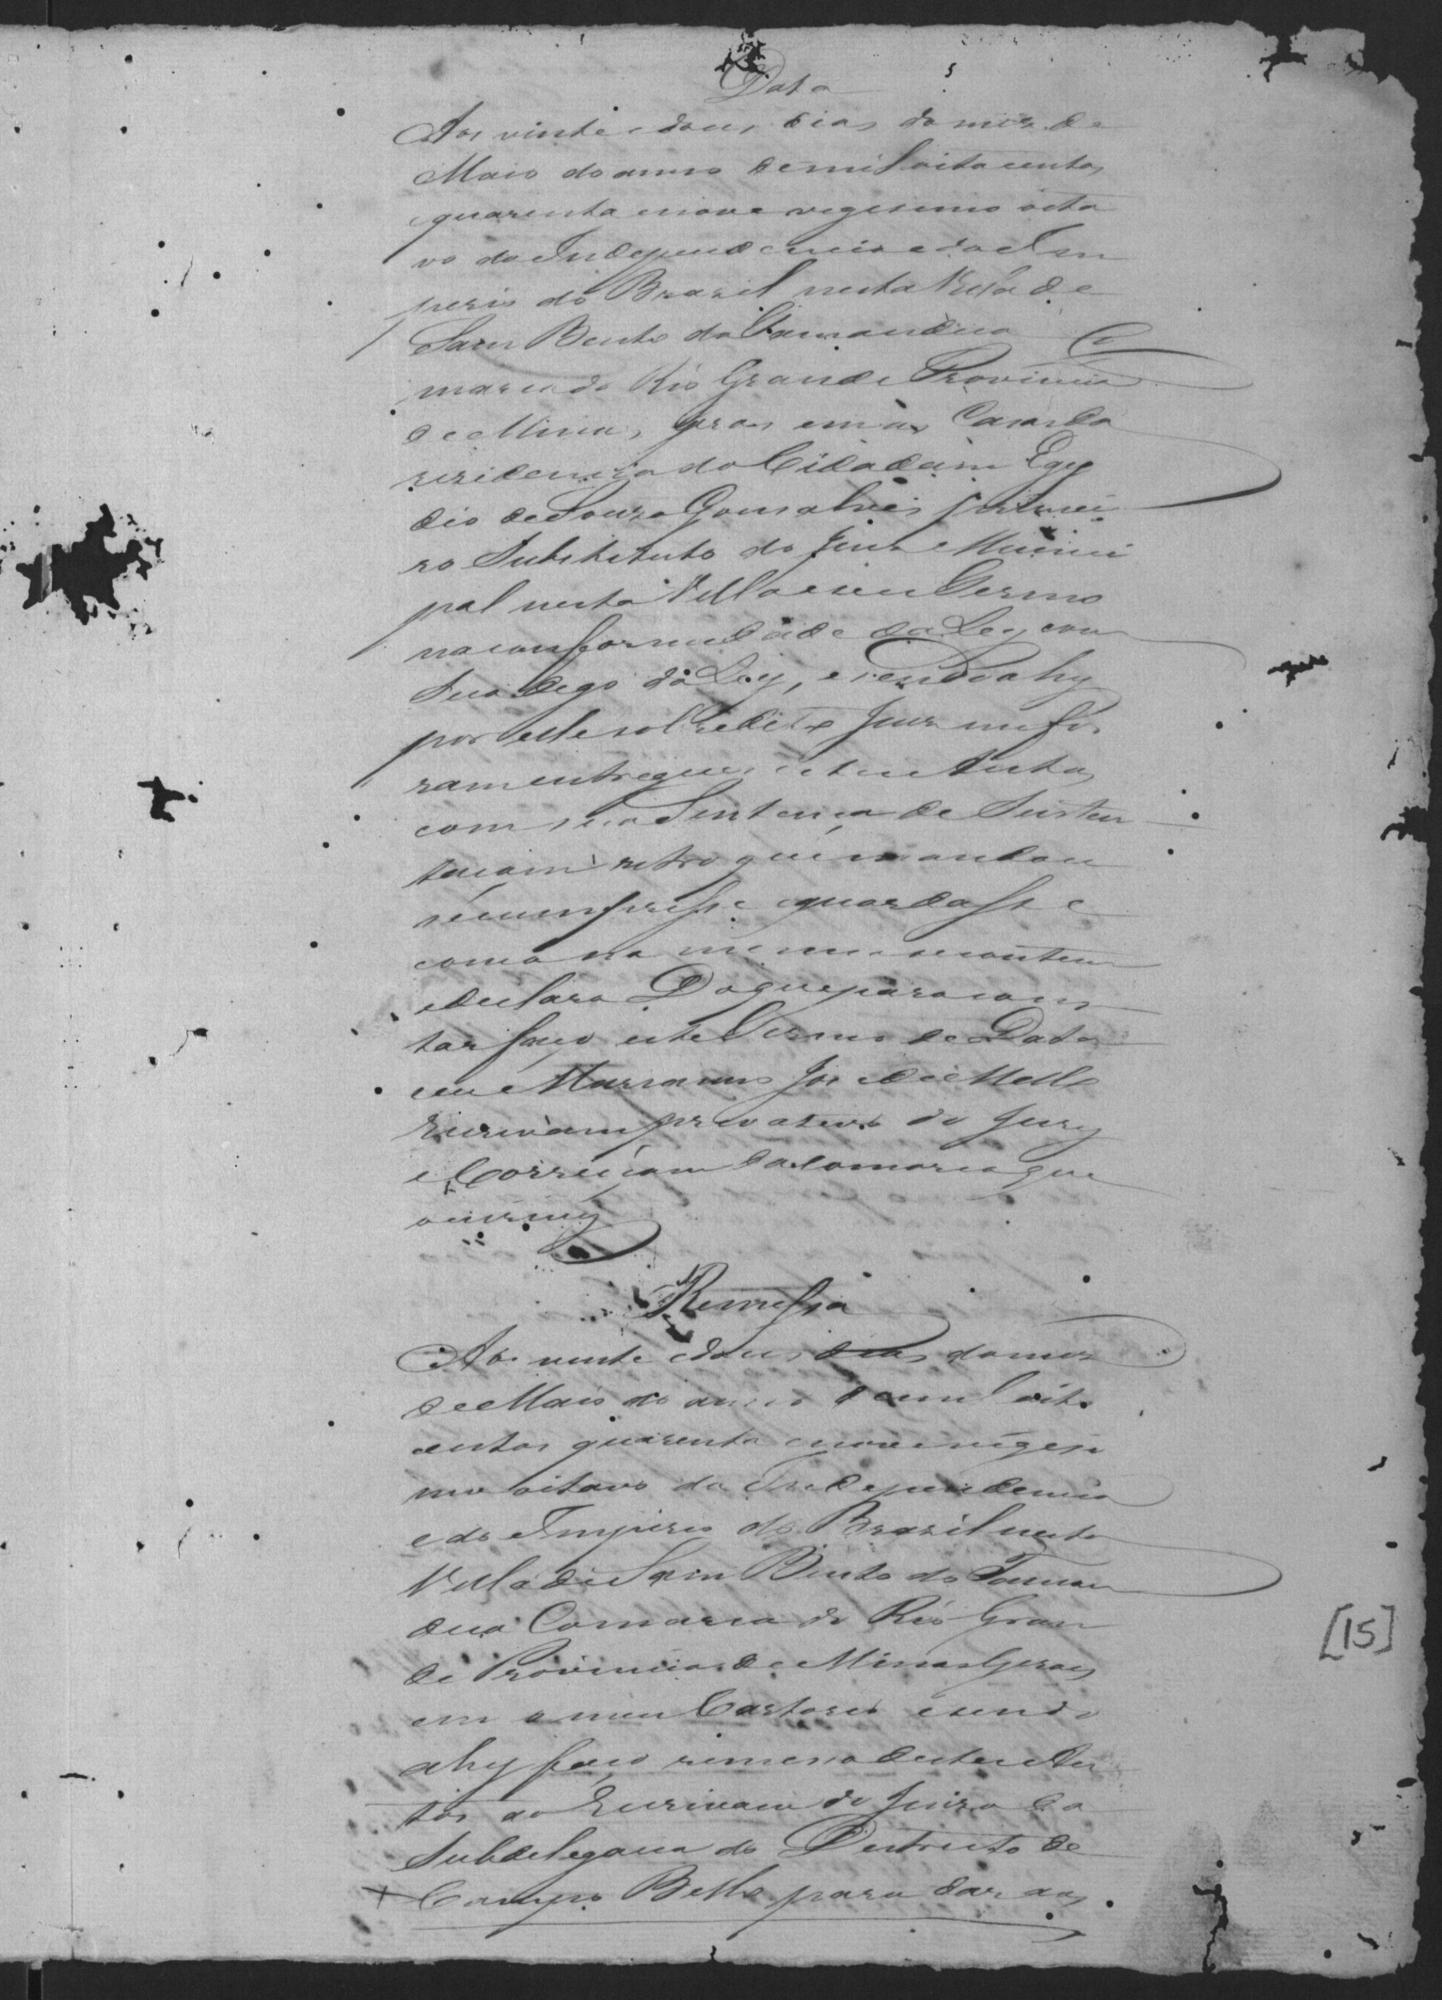 Data
Aos vinte e dous dias do mes de
Maio do anno de mil oito centos
quarenta e nove vigesimo oita
vo da Independencia e do Im
perio do Brazil nesta Villa de
Sam Bento do Tamanduá Co
marca do Rio Grande Provincia
de Minas geraes em as Casas da
rezidencia do Cidadam Egy
dio de Souza Gonsalves primei
ro Substituto do Juiz Munici
pal nesta Villa e seu Termo
na conformidade da Ley com
 da Ley, e sendo ahy
por elle sobredito Juiz me fo
ram entregues estes Autos
com sua Sentença de Susten
tacam retro que mandou
se cumprisse e guardasse
como na mesma se contem
e declara Do que para cons
tar faço este Termo de Data
eu Marianno José de Mello
Escrivam privativo do Jury
e Correiçam da Comarca que
o escrevy
Remessa
Aos vinte e dous dias do mes
de Maio do anno de mil oito
centos quarenta e nove vigesi
mo oitavo da Independencia
e do Imperio do Brazil nesta
Villa de Sam Bento do Taman
duá Comarca do Rio Gran
de Provincia de Minas Geraes
em o meu Cartorio e sendo
ahy faço remessa destes Au
tos ao Escrivam do Juizo da
Subdelegacia do Destricto de
Campo Bello para dar aos
[15]